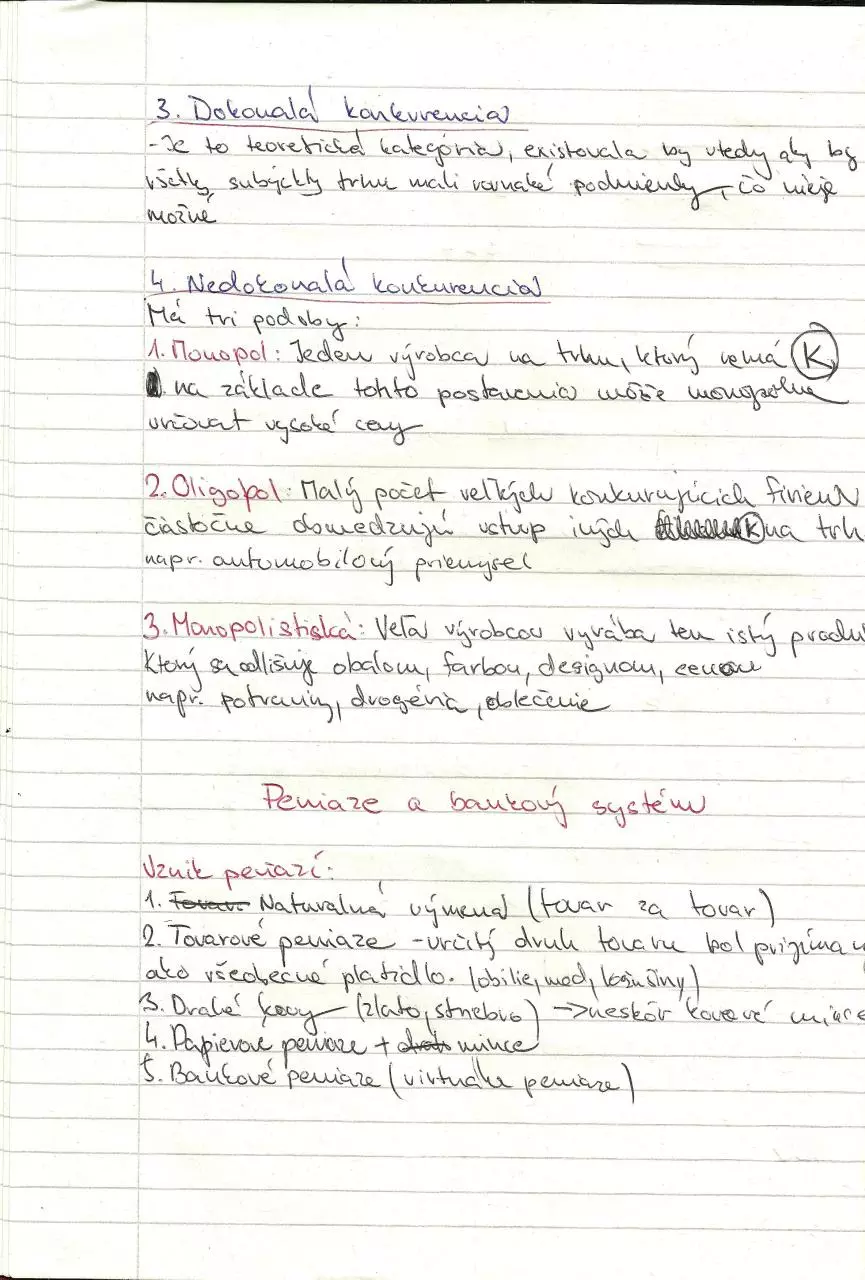 3. Dokonalá konkurencia
-Je to teoretická kategória, existovala by vtedy aky by
všetky subjekty trhu mali rovnaké podmienky, čo nieje
možné
4. Nedokonalá konkurencia
Má tri podoby:
1. Monopol: Jeden výrobca na trhu, ktorý nemá K,
na základe tohto postavenia môže monopolne
určovať vysoké ceny
2. Oligopol: Malý počet veľkých konkurujúcich firiem
čiastočne obmedzujú vstup iných K na trh
napr. automobilový priemysel
3. Monopolistiská: Veľa výrobcov vyrába ten istý produ
Ktorý sa odlišuje obalom, farbou, designom, cenou
napr. potraviny, drogéria, oblečenie
Peniaze a bankový systém
Vznik peňazí:
1. Tovar. Naturalná výmena (tovar za tovar)
2. Tovarové peniaze - určitý druh tovaru bol prijíma
ako všeobecné platidlo. (obilie, med, kožušiny)
3. Drahé kovy (zlato, striebro) -> neskôr kovové mince
4. Papierove peniaze + mince
5. Bankové peniaze (virtuálne peniaze)